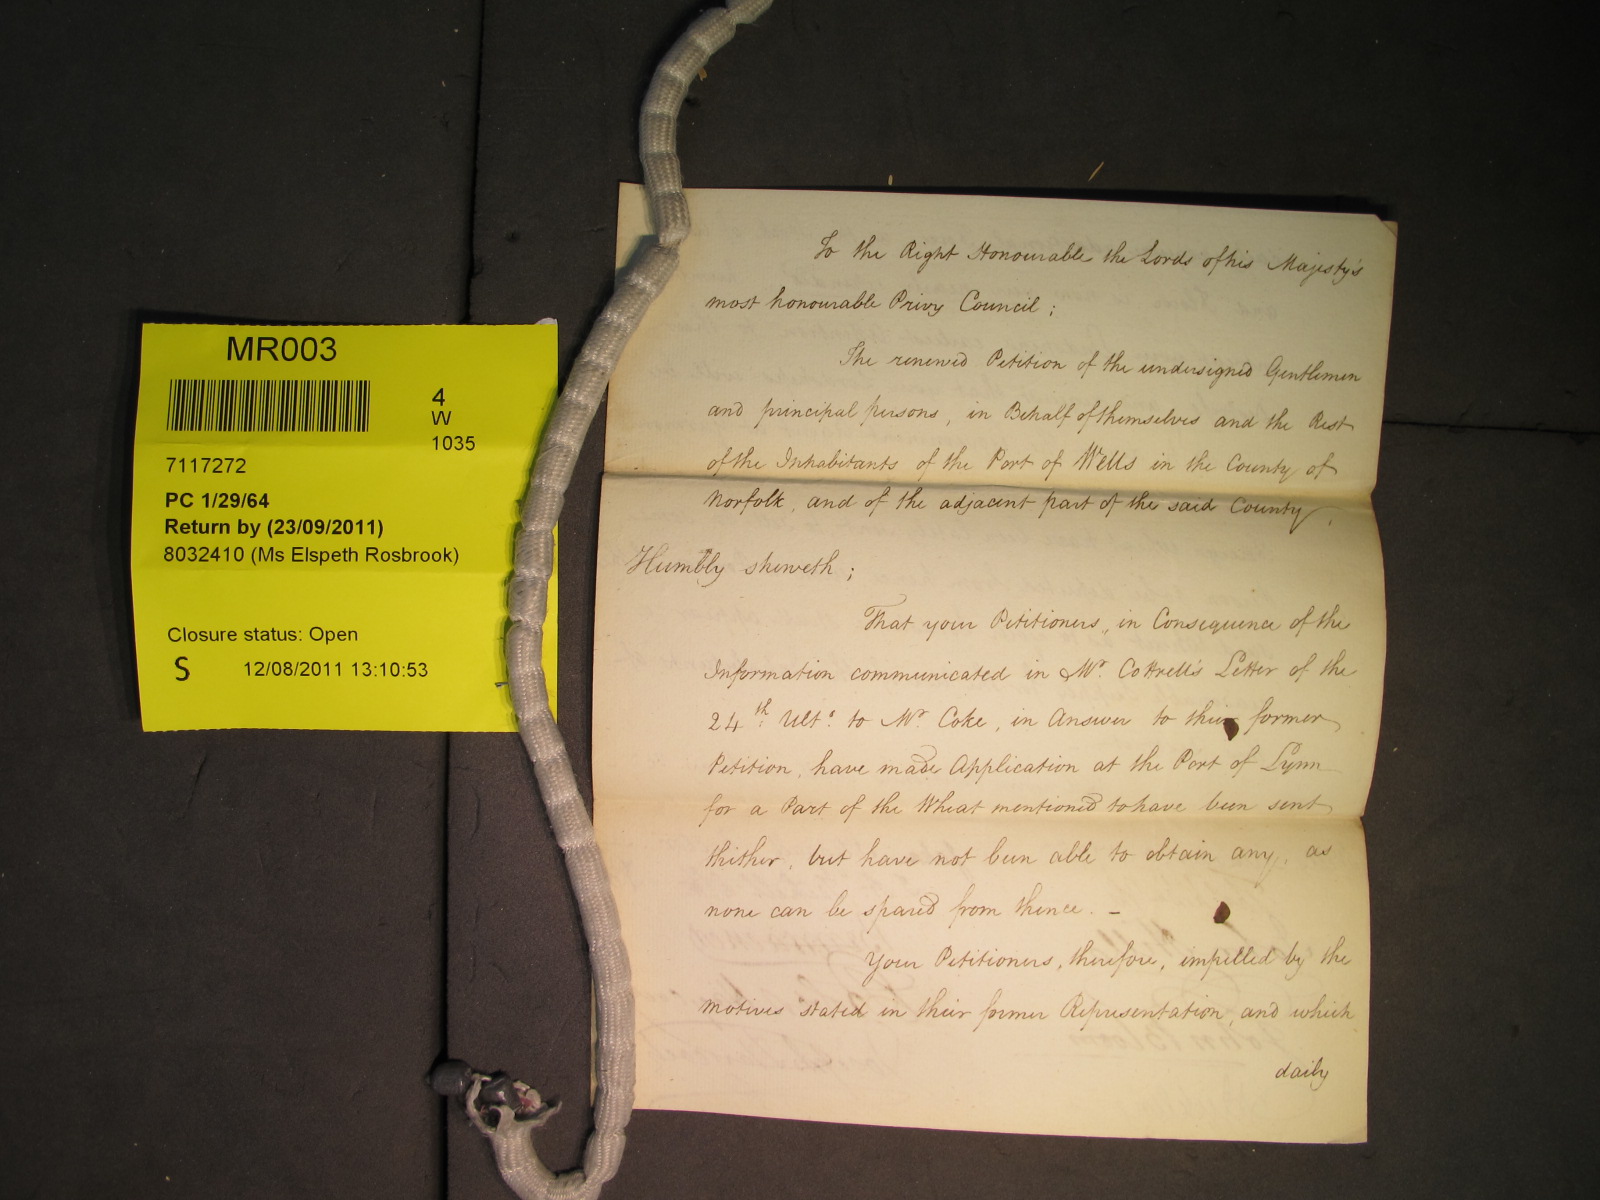 MR003
4
W
1035
7117272
PC 1/29/64
Return by (23/09/2011)
8032410 (Ms Elspeth Rosbrook)
Closure status: Open
S 12/08/2011 13:10:53
To the Right Honourable the Lords of his Majesty's
most honourable Privy Council;
The renewed Petition of the undersigned Gentlemen
and principal persons, in Behalf of themselves and the Rest
of the Inhabitants of the Port of Wells in the County of
Norfolk, and of the adjacent part of the said County,
Humbly sheweth;
That your Petitioners, in Consequence of the
Information communicated in Mr. Cottrell's Letter of the
24th Ulto. to Mr Coke, in Answer to their former
Petition, have made Application at the Port of Lynn
for a Part of the Wheat mentioned to have been sent
thither, but have not been able to obtain any, as
none can be spared from thence. -
Your Petitioners, therefore, impelled by the
motives stated in their former Representation, and which
daily